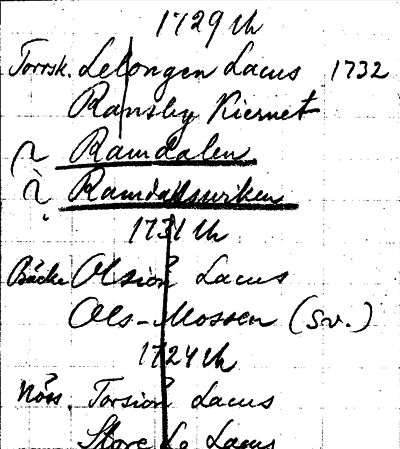 1729 Uh
Torrsk. Lelongen Lacus 1732
Ransby Kiernet
Ramdalen
Ramdalswiken
1731 Uh
Bäcke Olsion Lacus
Ols-Mossen (Sv.)
1724 Uh
Nöss. Torsion Lacus
Store Le Lacus